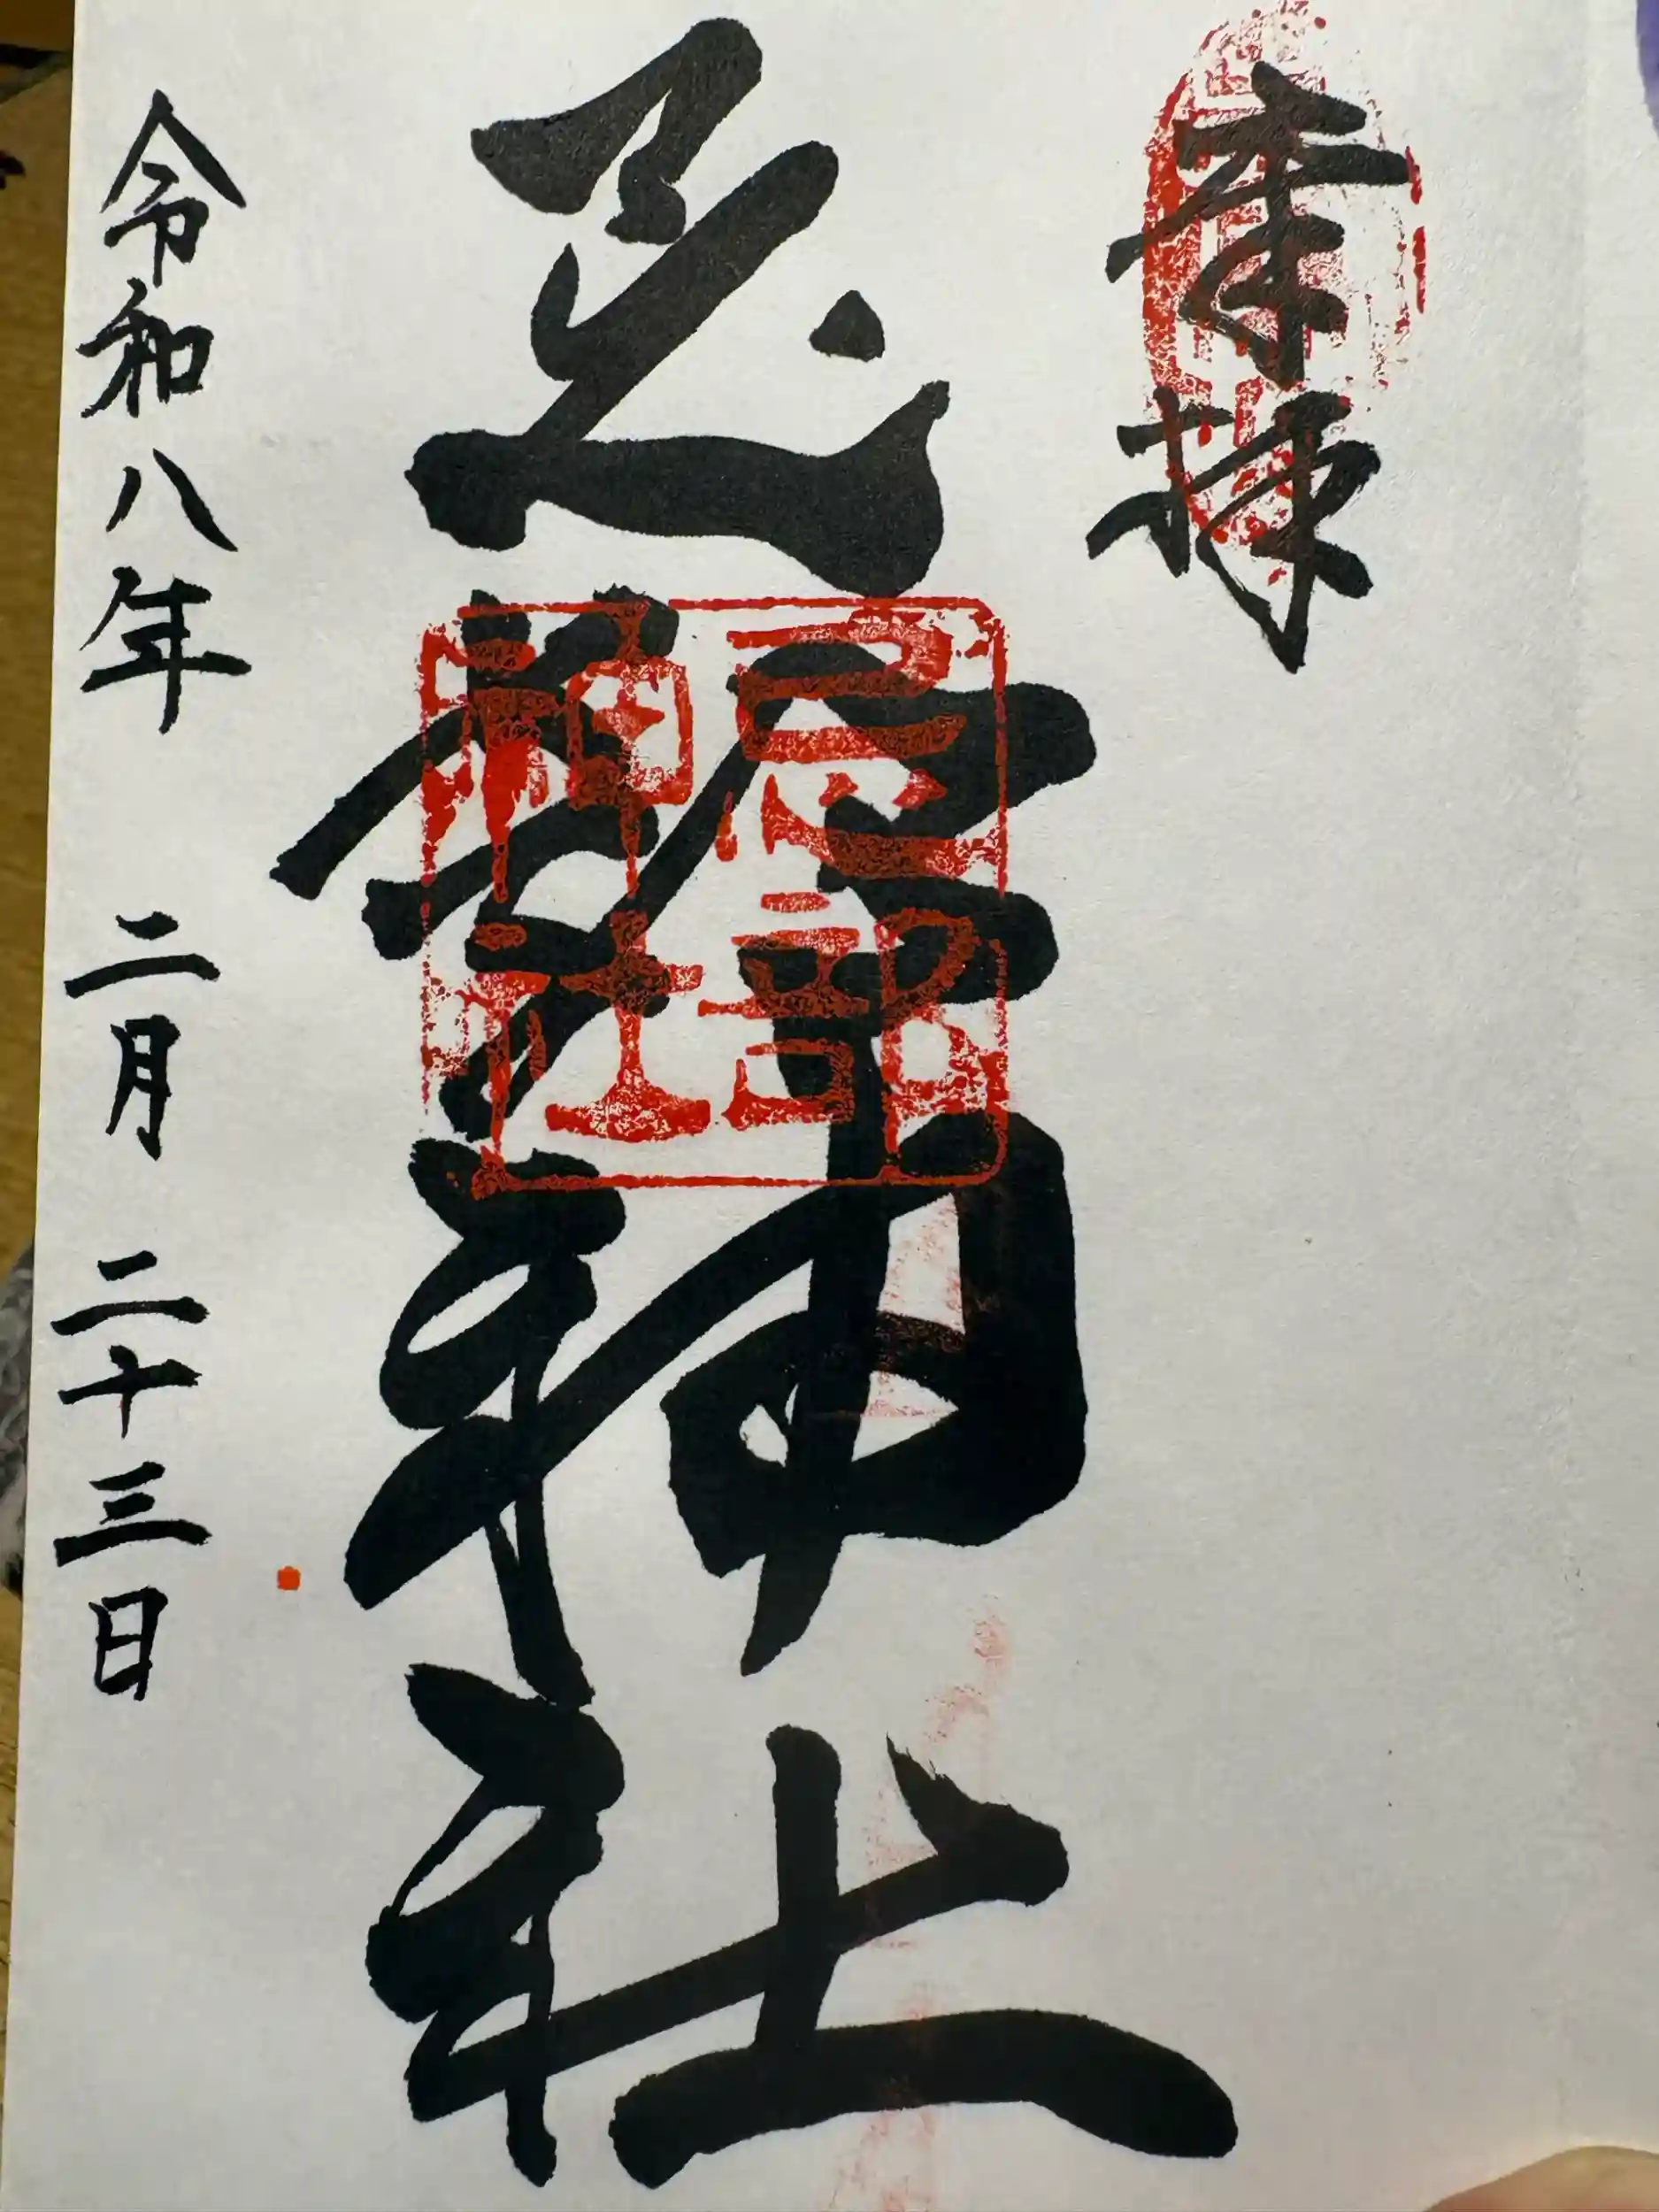 奉拝
忌部神社
忌部
神社
令和八年 二月 二十三日